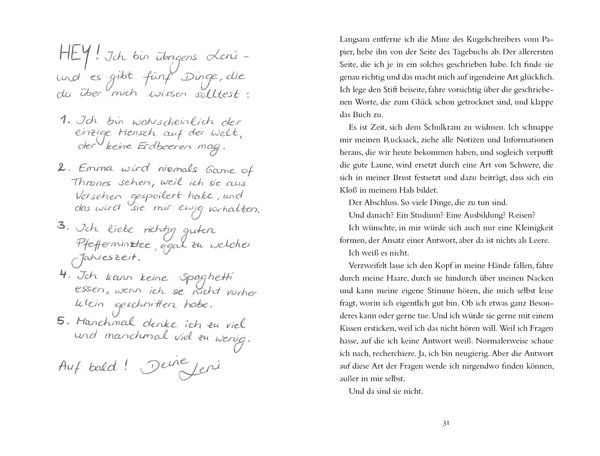 HEY! Ich bin übrigens Leni –
und es gibt fünf Dinge, die
du über mich wissen solltest:
1. Ich bin wahrscheinlich der
einzige Mensch auf der Welt,
der keine Erdbeeren mag.
2. Emma wird niemals Game of
Thrones sehen, weil ich sie aus
Versehen gespoilert habe, und
das wird sie mir ewig vorhalten.
3. Ich liebe richtig guten
Pfefferminztee, egal zu welcher
Jahreszeit.
4. Ich kann keine Spaghetti
essen, wenn ich sie nicht vorher
klein geschnitten habe.
5. Manchmal denke ich zu viel
und manchmal viel zu wenig.
Auf bald! Deine
Leni
Langsam entferne ich die Mine des Kugelschreibers vom Pa-
pier, hebe ihn von der Seite des Tagebuchs ab. Der allerersten
Seite, die ich je in ein solches geschrieben habe. Ich finde sie
genau richtig und das macht mich auf irgendeine Art glücklich.
Ich lege den Stift beiseite, fahre vorsichtig über die geschriebe-
nen Worte, die zum Glück schon getrocknet sind, und klappe
das Buch zu.
Es ist Zeit, sich dem Schulkram zu widmen. Ich schnappe
mir meinen Rucksack, ziehe alle Notizen und Informationen
heraus, die wir heute bekommen haben, und sogleich verpufft
die gute Laune, wird ersetzt durch eine Art von Schwere, die
sich in meiner Brust festsetzt und dazu beiträgt, dass sich ein
Kloß in meinem Hals bildet.
Der Abschluss. So viele Dinge, die zu tun sind.
Und danach? Ein Studium? Eine Ausbildung? Reisen?
Ich wünschte, in mir würde sich auch nur eine Kleinigkeit
formen, der Ansatz einer Antwort, aber da ist nichts als Leere.
Ich weiß es nicht.
Verzweifelt lasse ich den Kopf in meine Hände fallen, fahre
durch meine Haare, durch sie hindurch bis hinter über meinen Nacken
und kann meine eigene Stimme hören, die mich selbst leise
fragt, wor in ich eigentlich gut bin. Ob ich etwas ganz Beson-
deres kann oder gerne tue. Und ich würde sie gerne mit einem
Kissen ersticken, weil ich das nicht hören will. Weil ich Fragen
hasse, auf die ich keine Antwort weiß. Normalerweise schaue
ich nach, recherchiere. Ja, ich bin neugierig. Aber die Antwort
auf diese Art der Fragen werde ich nirgendwo finden können,
außer in mir selbst.
Und da sind sie nicht.
31